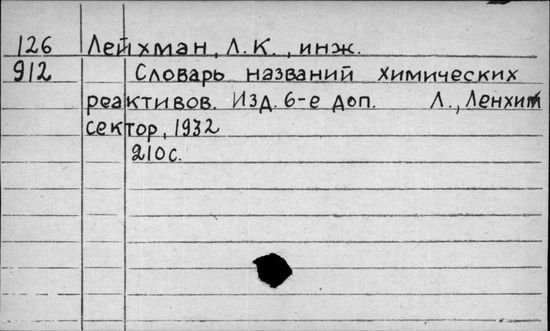 126 Лейхман, Л.К., инж.
912 Словарь названий химических
реактивов. Изд. 6-е доп. Л., Ленхим
сектор, 1932
210с.